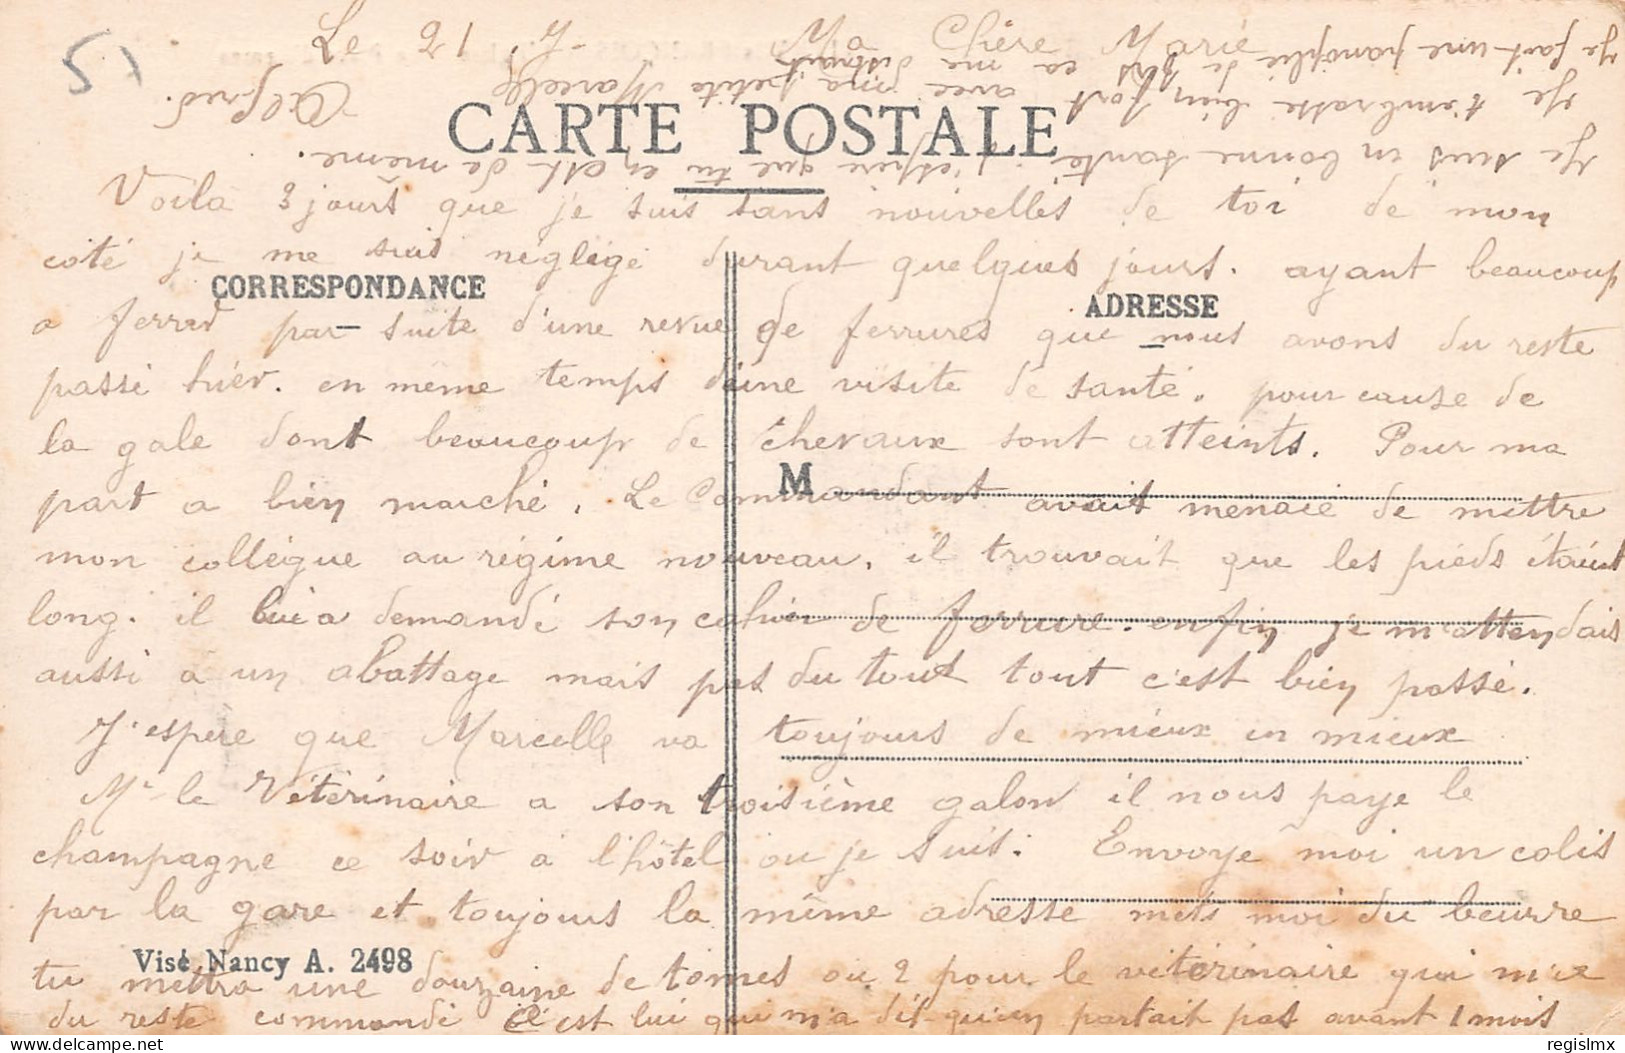 51
Le 21. 7- Ma Chère Marie
CARTE POSTALE
Voila 3 jours que je suis sans nouvelles de toi de mon
coté je me suis négligé durant quelques jours. ayant beaucoup
CORRESPONDANCE
ADRESSE
a ferrer par suite d'une revue de ferrures que nous avons du reste
passé hier. en même temps d'une visite de santé. pour cause de
la gale dont beaucoup de chevaux sont atteints. Pour ma
M
part a bien marché. Le Commandant avait menaié de mettre
mon collégue au régime nouveau. il trouvait que les pieds étaient
long. il lui a demandé son cahier de ferrure. enfin je m'attendais
aussi à un abattage mais pas du tout tout c'est bien passé.
J'espère que Marcelle va toujours de mieux en mieux
Mr le Vétérinaire a son troisième galon il nous paye le
champagne ce soir à l'hôtel ou je suis. Envoye moi un colis
par la gare et toujours la même adresse mets moi du beurre
Visé Nancy A. 2498
tu mettra une douzaine de tomes ou 2 pour le vétérinaire qui m'a
du reste commandé c'est lui qui m'a dit qu'on partait pas avant 1 mois
Je suis en bonne santé j'espère que tu en est de même.
Je t'embrasse bien fort avec ma petite Marcelle Alfred.
Je fait une panoplie de
regislmx